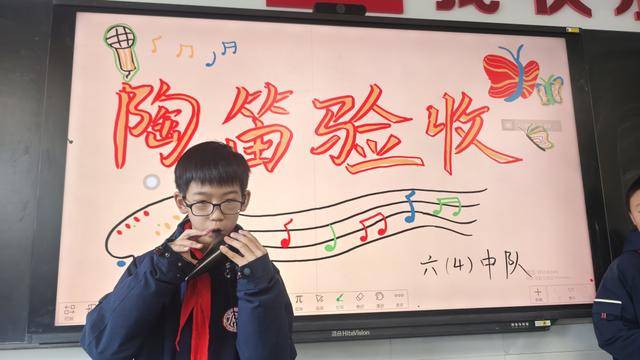 陶笛验收
六(4)中队
HiteVision